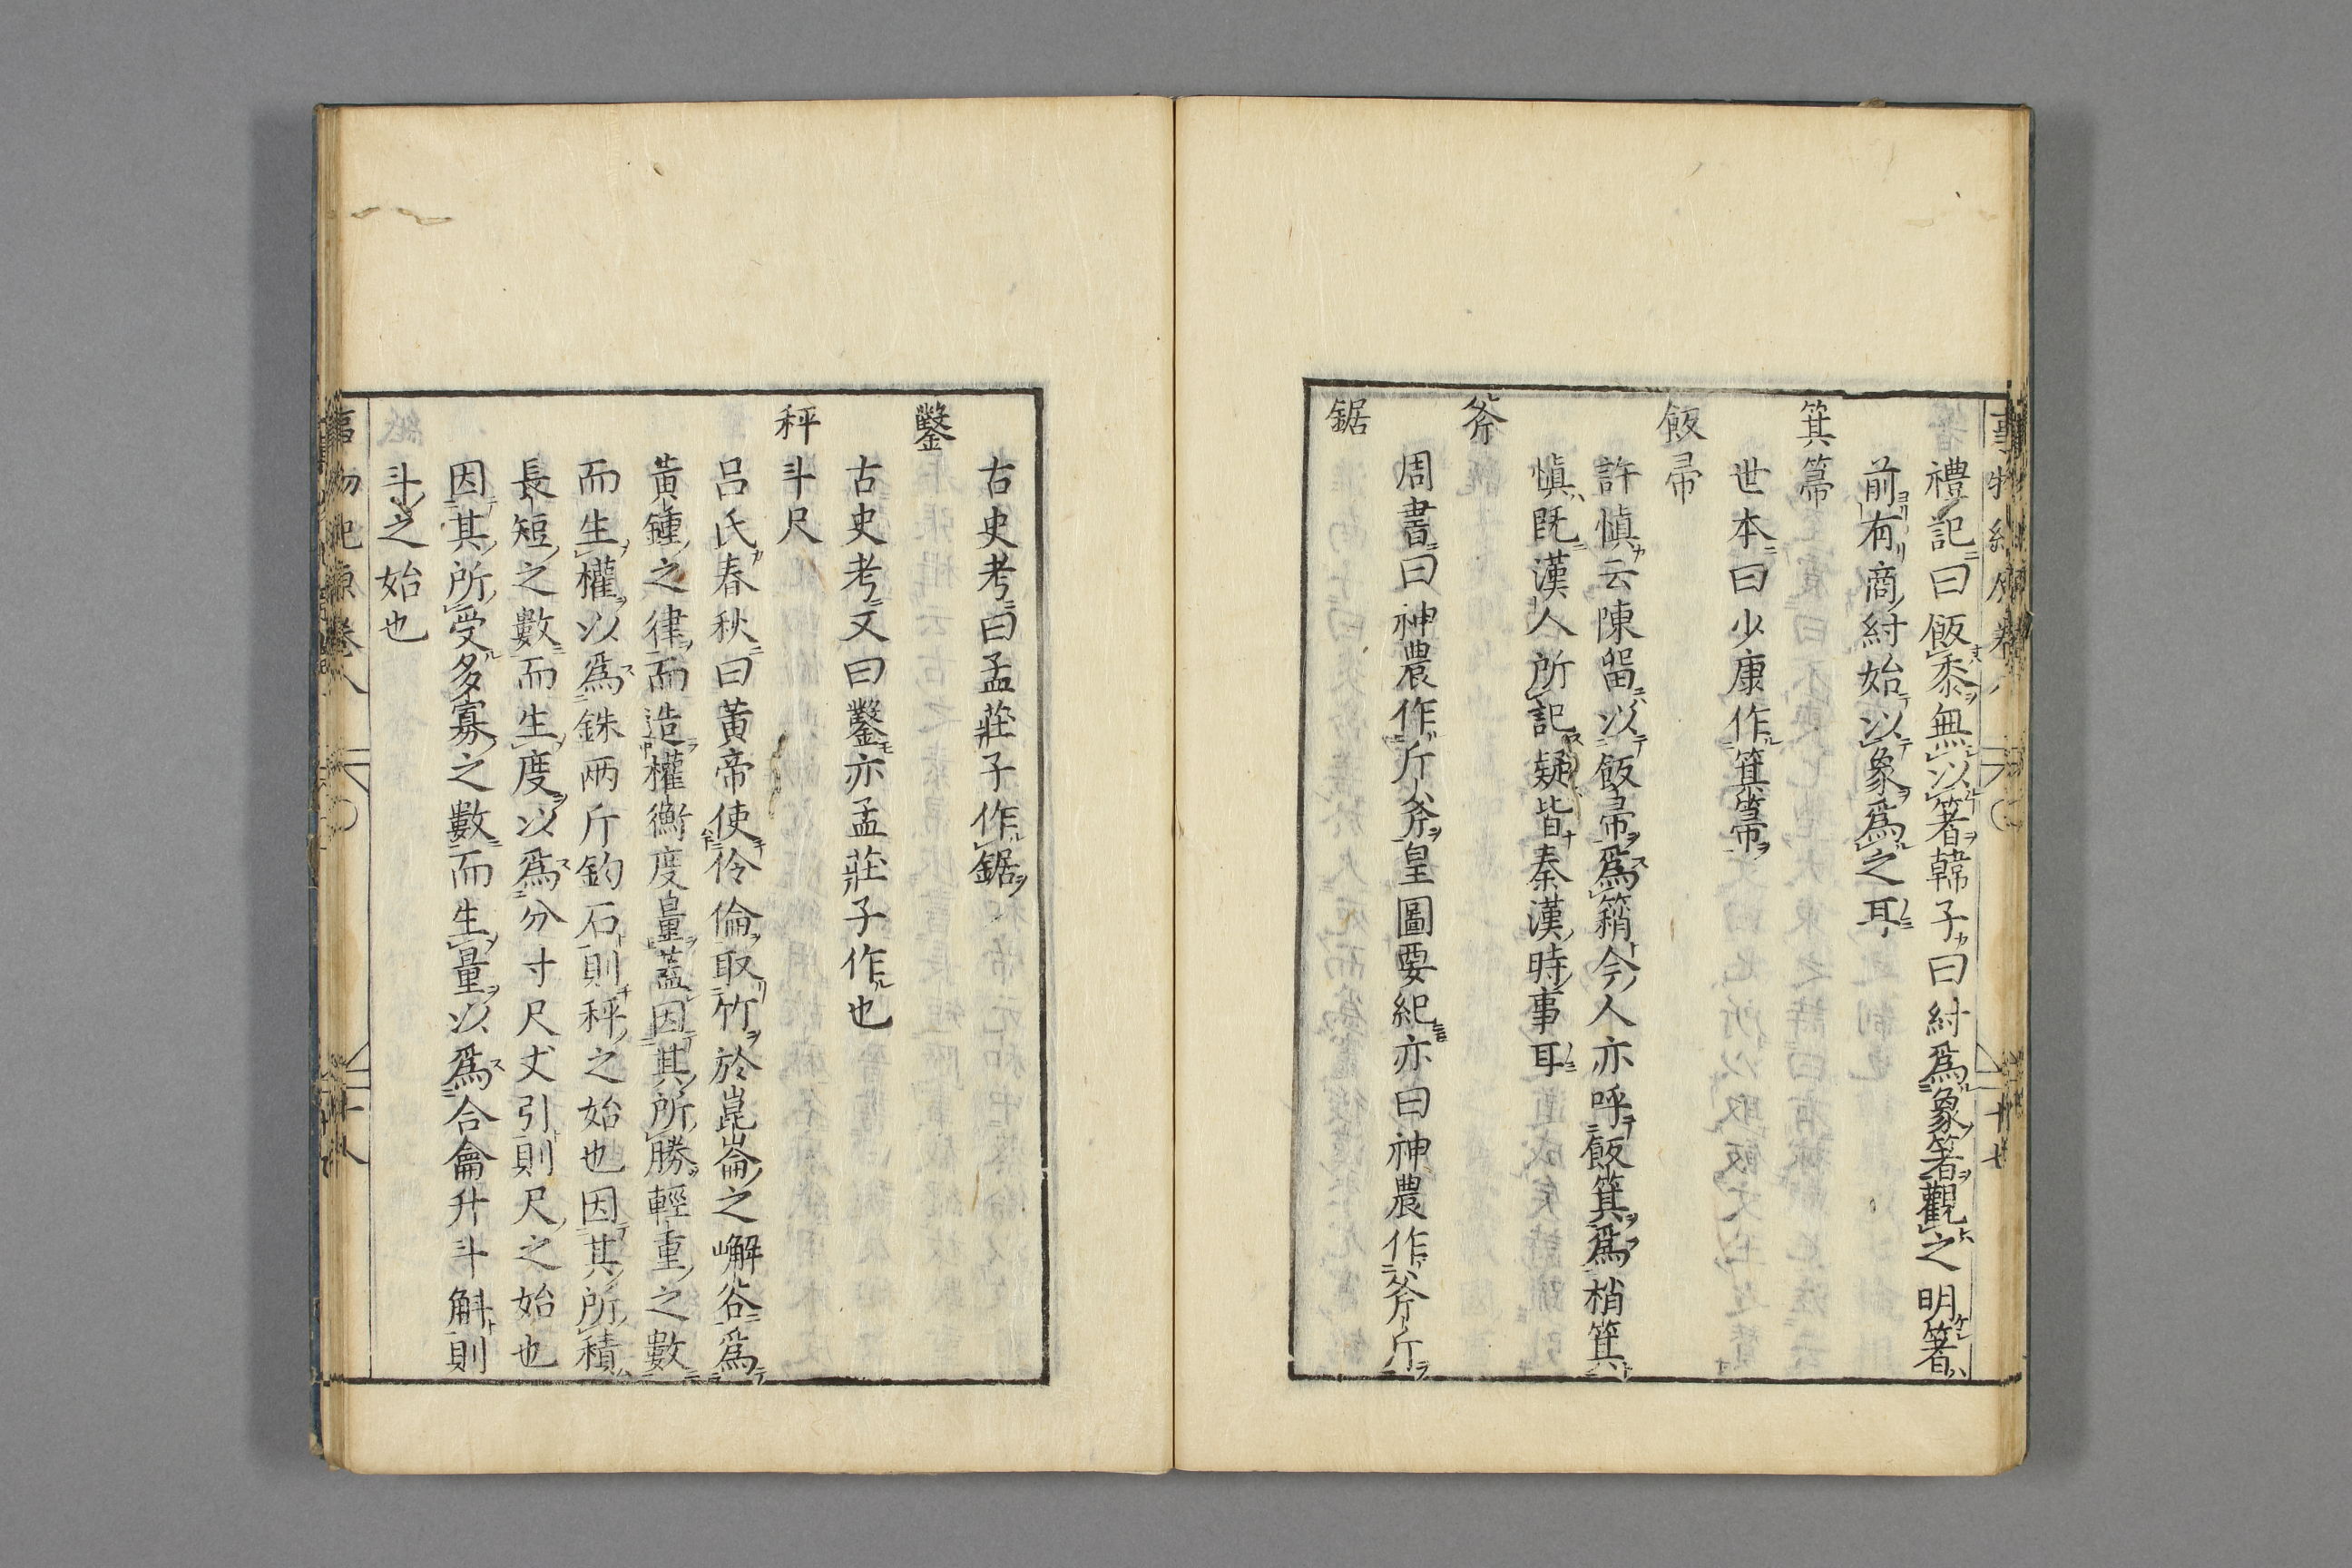 禮記曰飯黍無以箸韓子曰紂爲象箸觀之明箸
前有商紂始以象爲之耳
箕箒
世本曰少康作箕箒
飯帚
許慎云陳留以飯帚爲䈰今人亦呼飯箕爲梢箕
慎既漢人所記疑皆秦漢時事耳
斧
周書曰神農作斤斧皇圖要紀亦曰神農作斧斤
鋸
古史考曰孟莊子作鋸
鑿
古史考文曰鑿亦孟莊子作也
秤斗尺
呂氏春秋曰黃帝使伶倫取竹於崑崙之嶰谷爲
黃鍾之律而造權衡度量蓋因其所勝輕重之數
而生權以爲銖兩斤鈞石則秤之始也因其所積
長短之數而生度以爲分寸尺丈引則尺之始也
因其所受多寡之數而生量以爲合龠升斗斛則
斗之始也
事物紀原卷八